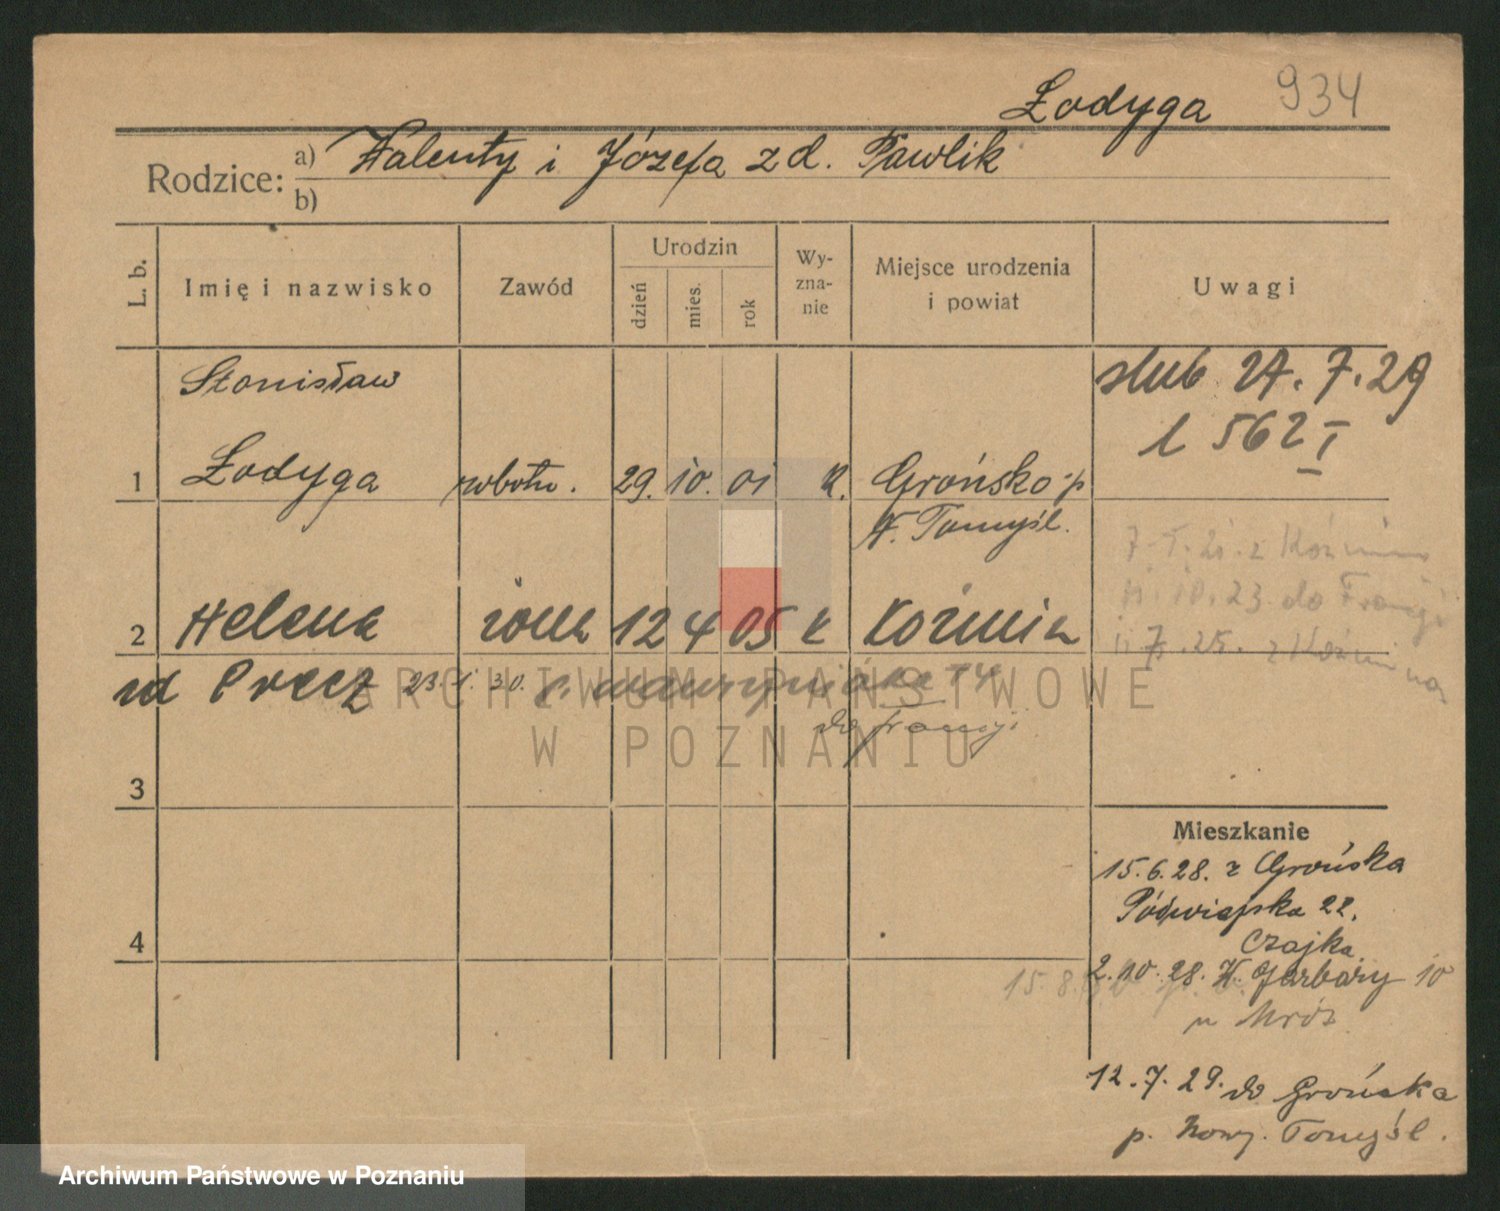 Łodyga 934
Rodzice: a) Walenty i Józefa z d. Pawlik
b)
L. b.
Imię i nazwisko
Zawód
Urodzin
dzień
mies.
rok
Wy-
zna-
nie
Miejsce urodzenia
i powiat
Uwagi
Stanisław
1 Łodyga robotn. 29. 10. 01 k. Grońsko p
N. Tomyśl.
ślub 27. 7. 29
l 562 I
7. 21. z Koźmina
10. 23 do Francji
7. 25. z Koźmina
2 Helena żona 12 4 05 k Koźmin
zd Precz 23. 1. 30.
do Francji
3
4
Mieszkanie
15. 6. 28. z Grońska
22.
Czajka
2. 10. 28. W. Garbary 10
u Mróz
15. 8.
12. 7. 29. do Grońska
p. Nowy. Tomyśl.
ARCHIWUM PAŃSTWOWE
W POZNANIU
Archiwum Państwowe w Poznaniu